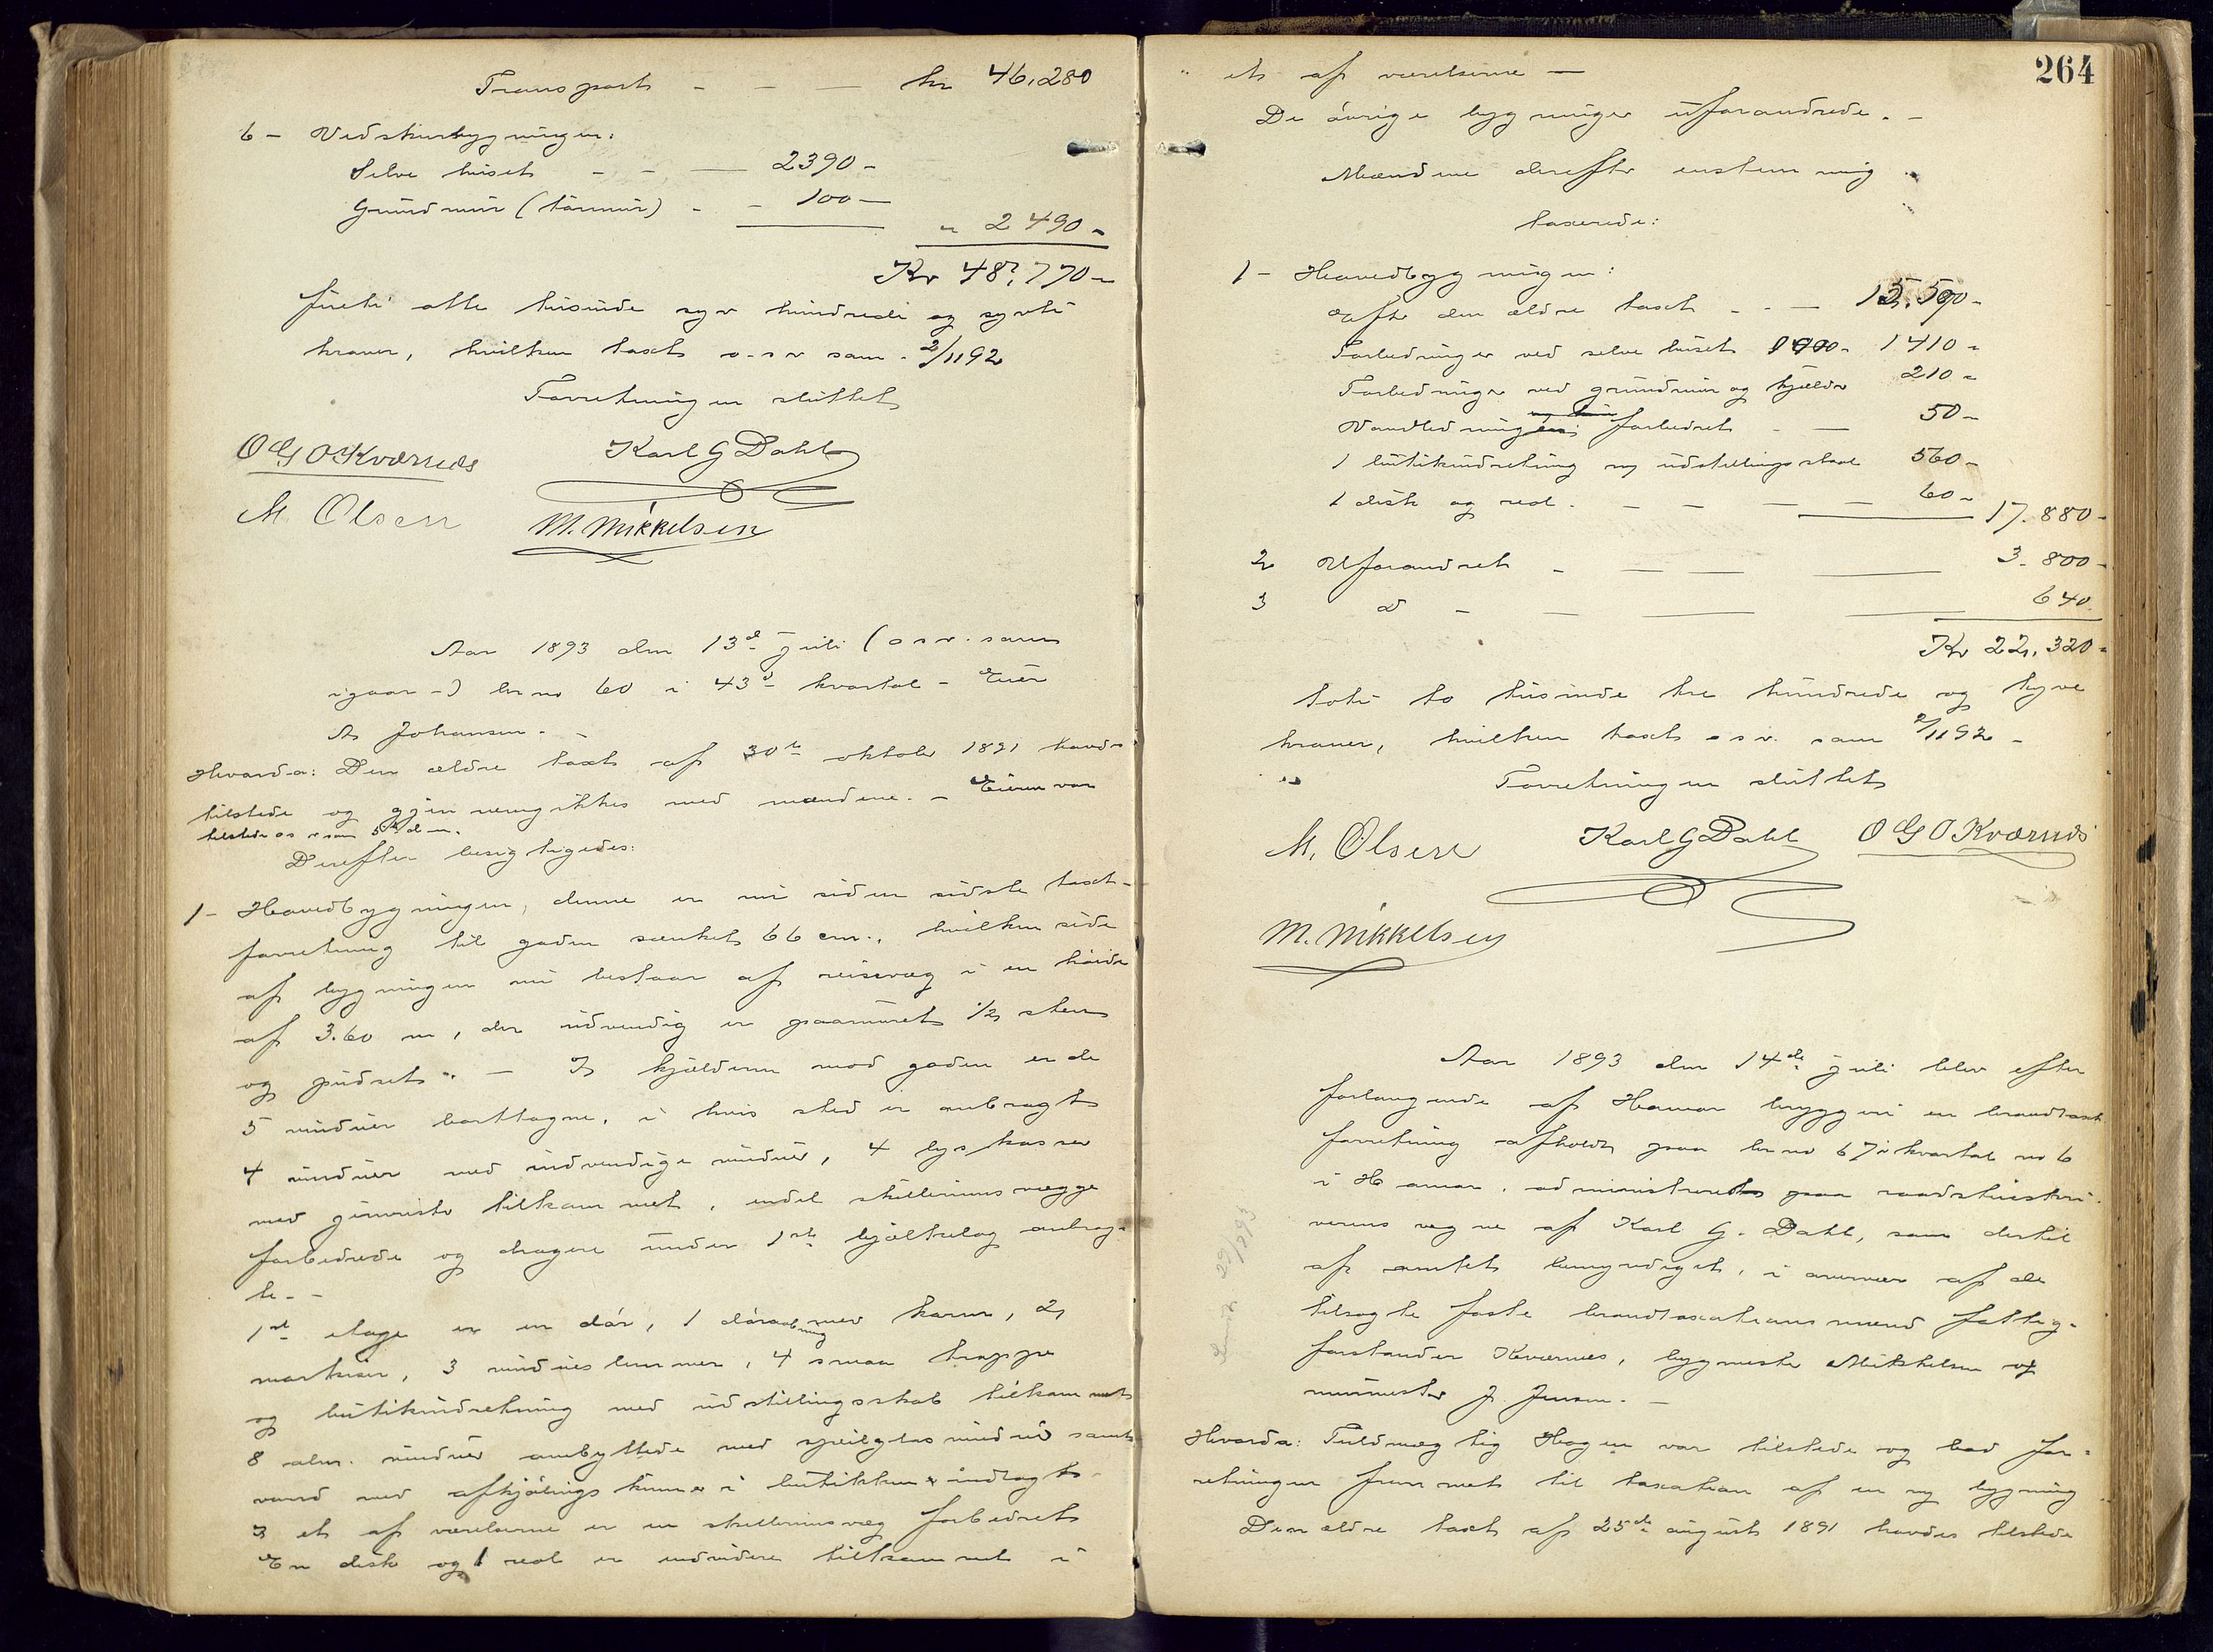 Transport - - - kr 46,280
6 - Vedskurbygningen:
Selve huset - - - 2390 -
Grundmur (tørmur) - - 100 -
" 2490 -
Kr 48,770 -
førti otte tusinde syv hundrede og sytti
kroner, hvilken taxt o.s.v som 2/11 92
Forretningen sluttet
O G O Kværnæs Karl G Dahl
M. Olsen M. Mikkelsen
Aar 1893 den 13de juli (o s v. som
igaar -) br no 60 i 43de kvartal - Eier
A Johansen. -
Hvorda: Den ældre taxt af 30te oktobr 1891 havdes
tilstede og gjennemgikkes med mændene. - Eieren var
tilstede o s v som 5te d m.
Derefter besigtigedes:
1 - Hovedbygningen, denne er nu siden sidste taxt-
forretning til gaden sænket 66 cm., hvilken side
af bygningen nu bestaar af reisvæg i en høide
af 3.60 m, der udvendig er paamuret 1/2 sten
og pudset. - I kjælderen mod gaden er de
5 vinduer borttagne, i hvis sted er anbragt
4 vinduer med indvendige vinduer, 4 lyskasser
med jernrister tilkommet, endel skillerumsvægge
forbedrede og dragere under 1ste bjælkelag anbrag-
te. -
1ste etage er en dør, 1 døraabning med karm, 2
markiser, 3 vindueslemmer, 4 smaa trappe
og butikindretning med udstillingsskab tilkommet
8 alm. vinduer ombyttede med speilglas vinduer samt
vand med afkjølings kum i butikken indlagt
3 et af værelserne er en skillerumsvæg forbedret
En disk og 1 reol er endvidere tilkommet i
264
" et af værelserne -
De øvrige bygninger uforandrede. -
Mændene derefter enstemmig
taxerede:
1 - Hovedbygningen:
Efter den ældre taxt - - - 15.590 -
Forbedringer ved selve huset 1410 -
Forbedringer ved grundmur og kjælder 210 -
Vandledning forbedret - - 50 -
1 butikindretning og udstillingsskab 560 -
1 disk og reol. - - - - 60 - 17.880 -
2 Uforandret - - - - 3.800 -
3 do - - - - 640.
Kr 22,320 -
toti to tusinde tre hundrede og tyve
kroner, hvilken taxt o s v. som 2/11 92 -
Forretningen sluttet
M. Olsen Karl G Dahl O G O Kværnæs
M. Mikkelsen
Aar 1893 den 14de juli blev efter
forlangende af Hamar bryggeri en brandtaxt
forretning afholdt paa br no 67 i kvartal no 6
i Hamar. administreret paa raadstueskri-
verens vegne af Karl G. Dahl, som dertil
af amtet bemyndiget, i overvær af de
tilsagte faste brandtaxationsmænd fattig-
forstander Kværnæs, bygmester Mikkelsen og
murmester J Jensen. -
Hvorda: Fuldmægtig Hagen var tilstede og bad for-
retningen fremmet til taxation af en ny bygning
Den ældre taxt af 25de august 1891 havdes tilstede
29/ 1893